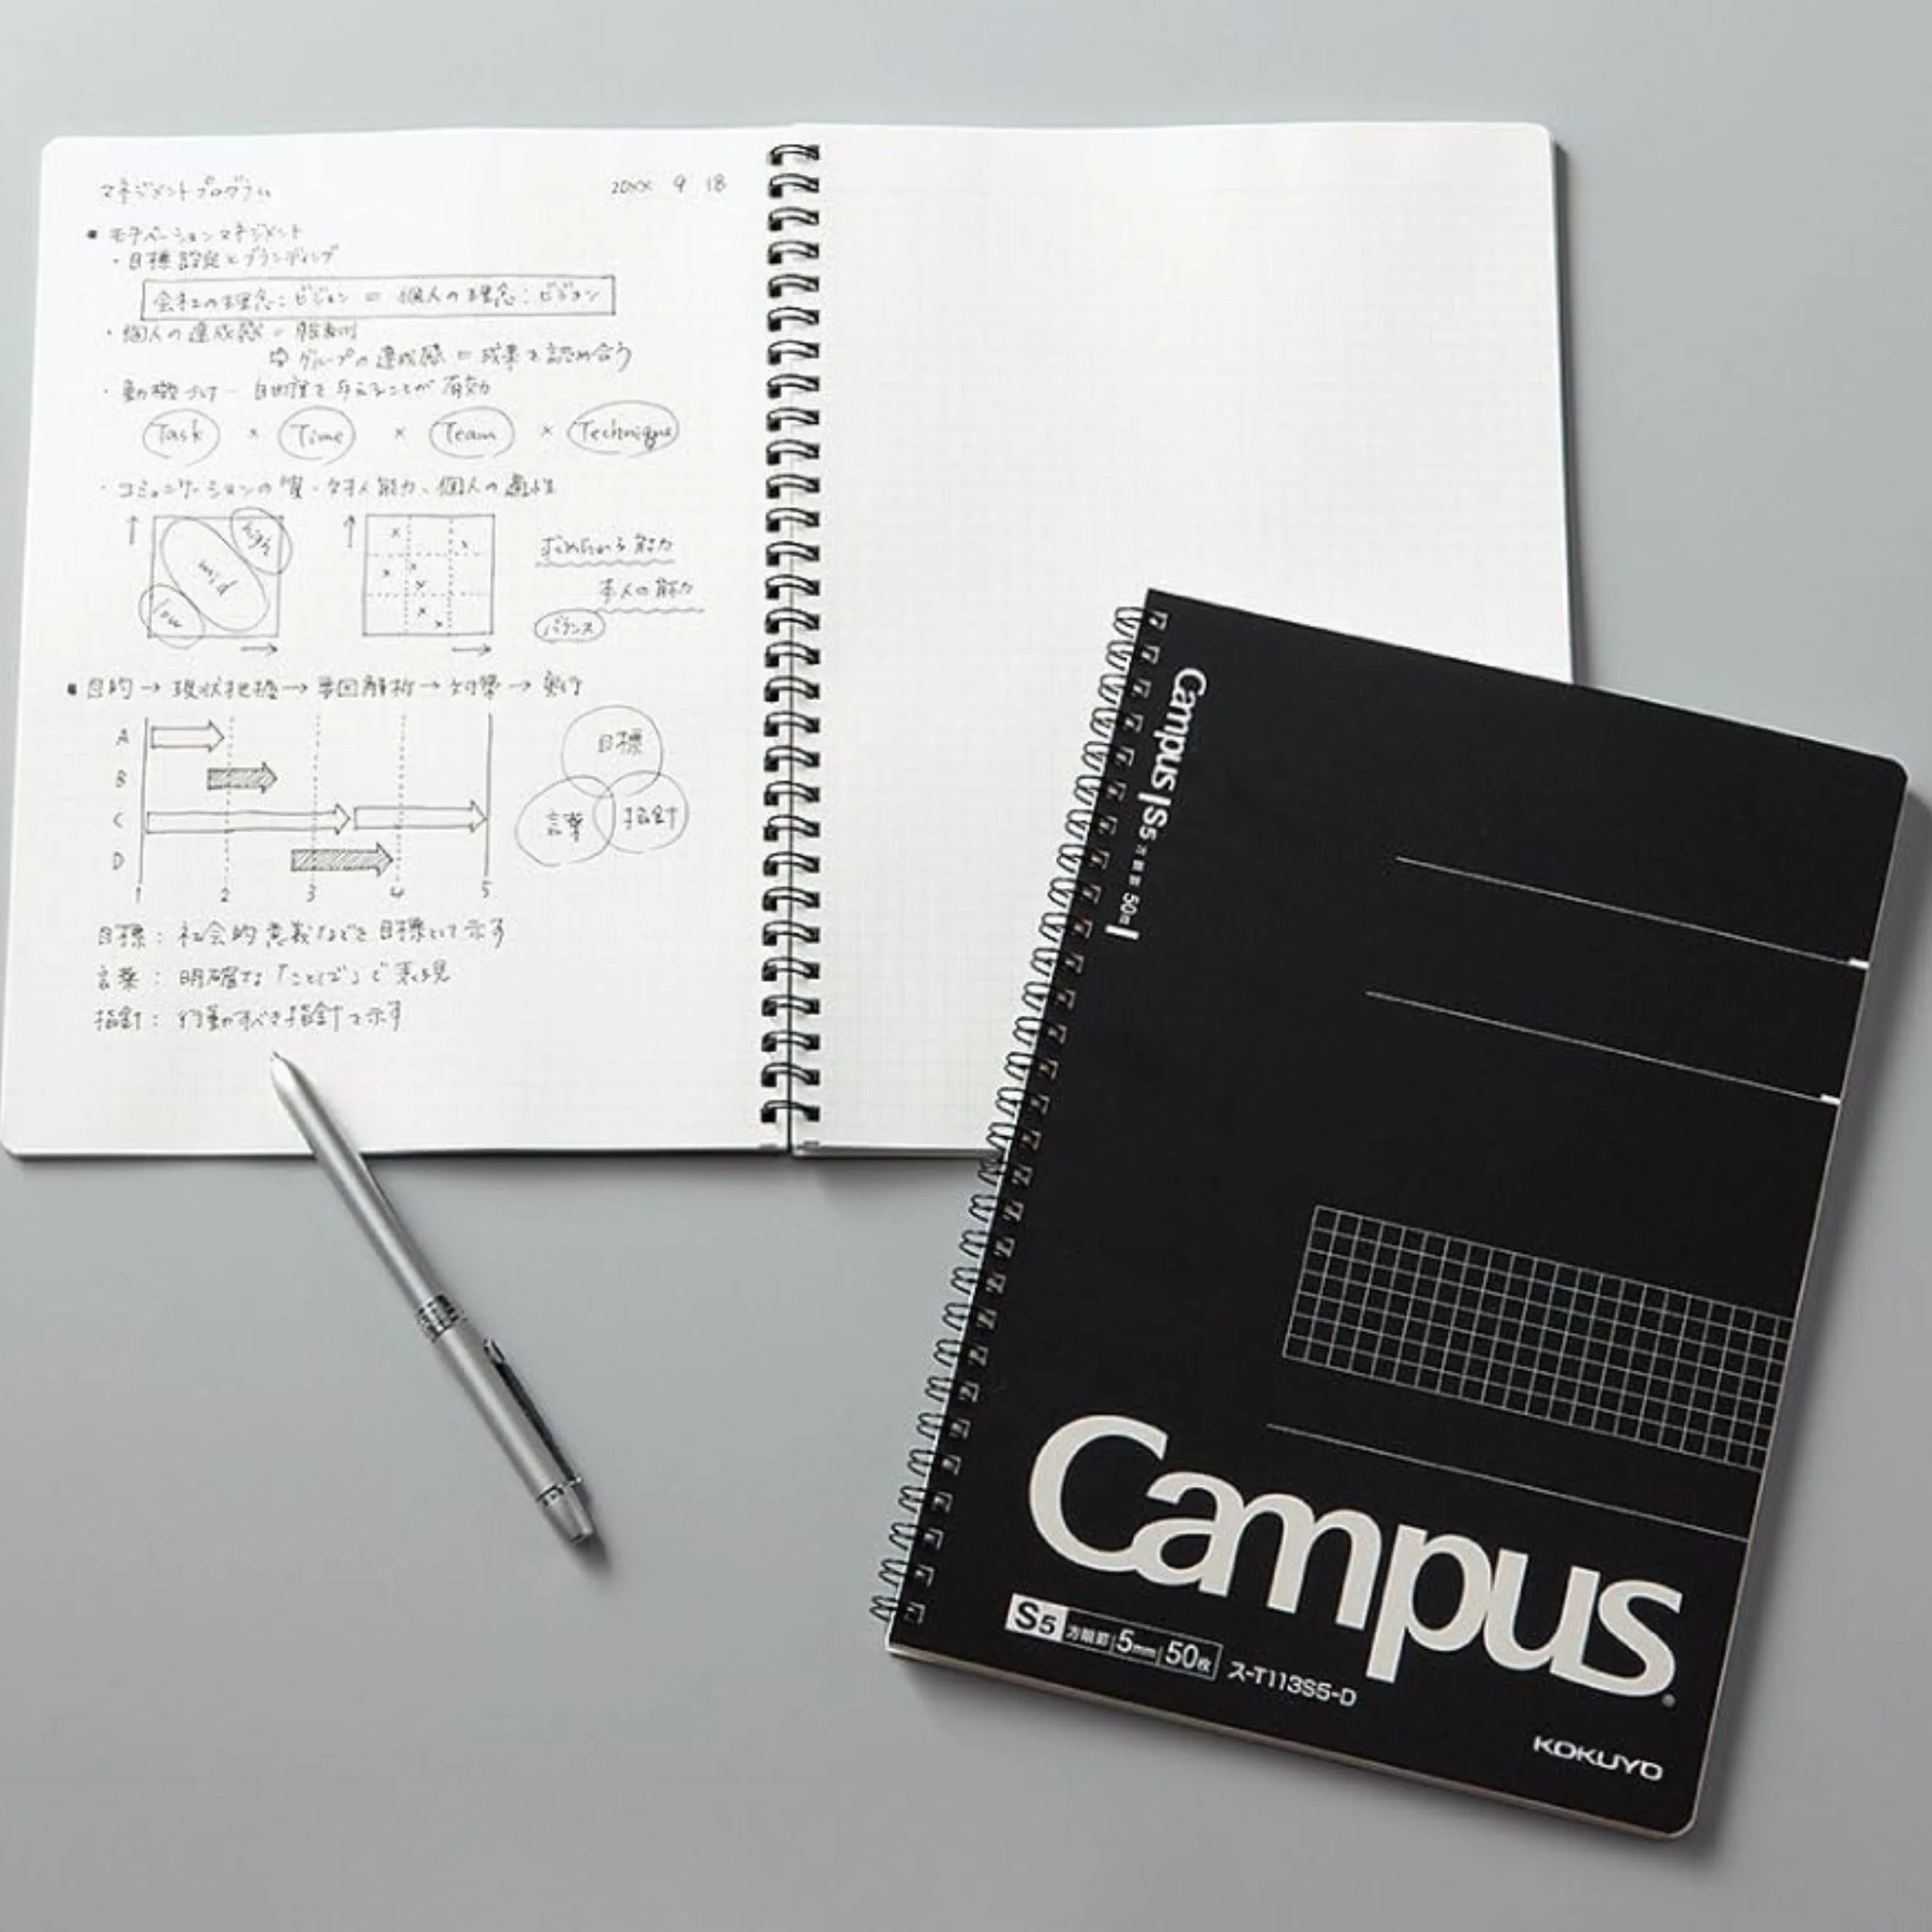 マネジメントプログラム 20XX 9 18
■ モチベーションマネジメント
・目標設定とブランディング
会社の理念:ビジョン = 個人の理念:ビジョン
・個人の達成感 =
⇨ グループの達成感 = 成果を認め合う
・動機づけ - 自由度を与えることが有効
Task × Time × Team × Technique
・コミュニケーションの質・対人能力、個人の適性
high
mid
low
求められる能力
本人の能力
バランス
■ 目的→現状把握→要因解析→対策→実行
A
B
C
D
1 2 3 4 5
目標
言葉
指針
目標: 社会的意義などを目標として示す
言葉: 明確な「ことば」で表現
指針: 行動すべき指針を示す
Campus S5 方眼罫 50枚
Campus
S5 方眼罫 5mm 50枚 ス-T113S5-D
KOKUYO